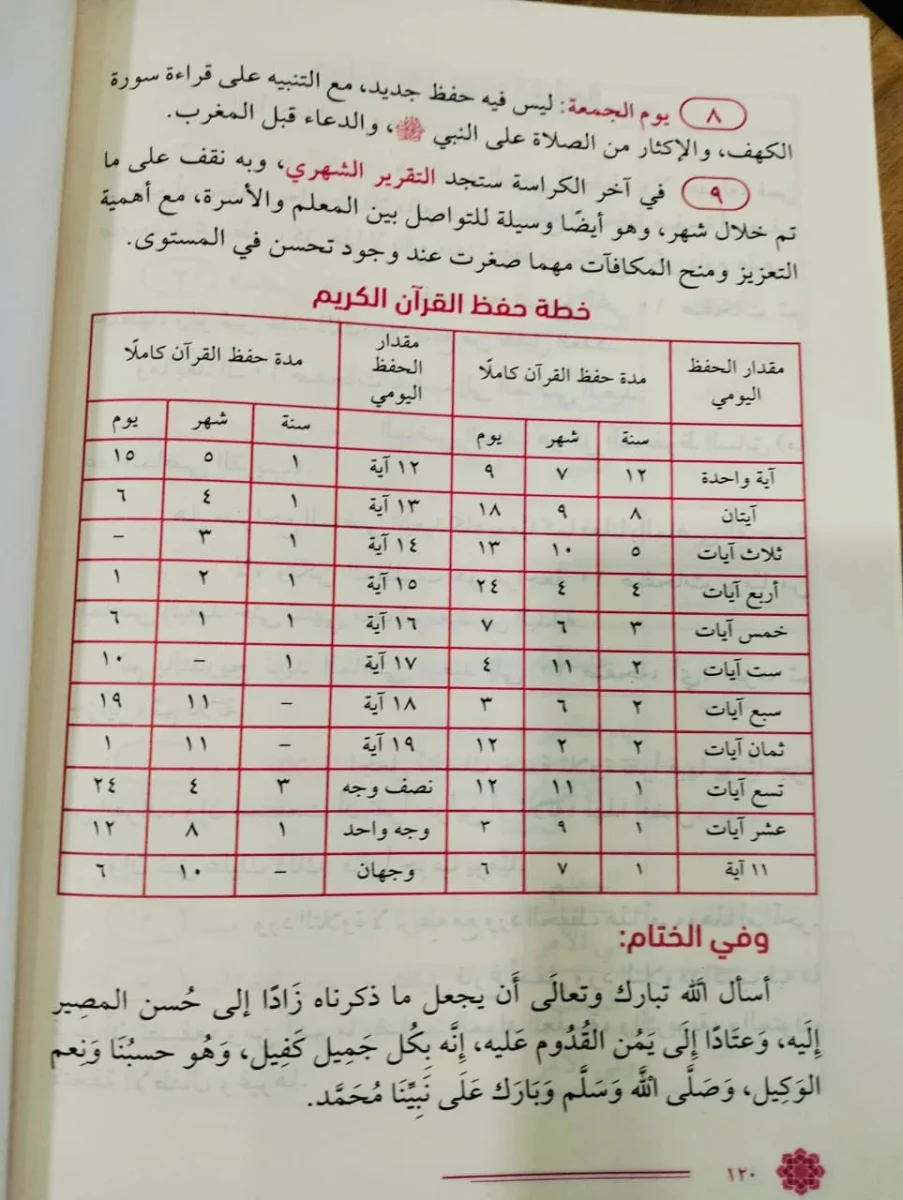 ٨ يوم الجمعة: ليس فيه حفظ جديد، مع التنبيه على قراءة سورة
الكهف، والإكثار من الصلاة على النبي ﷺ، والدعاء قبل المغرب.
٩ في آخر الكراسة ستجد التقرير الشهري، وبه نقف على ما
تم خلال شهر، وهو أيضًا وسيلة للتواصل بين المعلم والأسرة، مع أهمية
التعزيز ومنح المكافآت مهما صغرت عند وجود تحسن في المستوى.
خطة حفظ القرآن الكريم
مقدار الحفظ اليومي مدة حفظ القرآن كاملًا مقدار الحفظ اليومي مدة حفظ القرآن كاملًا
سنة شهر يوم سنة شهر يوم
آية واحدة ١٢ ٧ ٩ ١٢ آية ١ ٥ ١٥
آيتان ٨ ٩ ١٨ ١٣ آية ١ ٤ ٦
ثلاث آيات ٥ ١٠ ١٣ ١٤ آية ١ ٣ –
أربع آيات ٤ ٤ ٢٤ ١٥ آية ١ ٢ ١
خمس آيات ٣ ٦ ٧ ١٦ آية ١ ١ ٦
ست آيات ٢ ١١ ٤ ١٧ آية ١ – ١٠
سبع آيات ٢ ٦ ٣ ١٨ آية – ١١ ١٩
ثمان آيات ٢ ٢ ١٢ ١٩ آية – ١١ ١
تسع آيات ١ ١١ ١٢ نصف وجه ٣ ٤ ٢٤
عشر آيات ١ ٩ ٣ وجه واحد ١ ٨ ١٢
١١ آية ١ ٧ ٦ وجهان – ١٠ ٦
وفي الختام:
أسأل الله تبارك وتعالَى أَن يجعل ما ذكرناه زَادًا إلى حُسن المصِير
إِلَيه، وَعتَادًا إِلَى يَمُن القُدُوم عَليه، إنَّه بِكُل جَمِيل كَفِيل، وَهُو حسبُنَا وَنِعم
الوَكِيل، وَصَلَّى اللَّه وَسَلَّم وَبَارَك عَلَى نَبِيِّنَا مُحَمَّد.
١٢٠